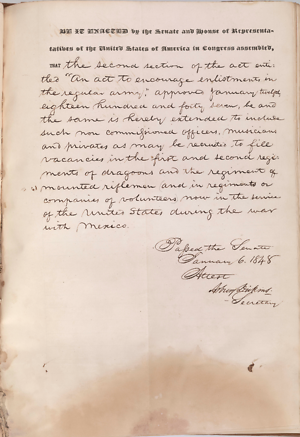 BE IT ENACTED by the Senate and House of Representa-
tatives of the United States of America in Congress assembled,
THAT the second section of the act enti-
tled "An act to encourage enlistments in
the regular army," approved January twelfth
eighteen hundred and forty seven, be and
the same is hereby extended to include
such non commissioned officers, musicians
and privates as may be recruited to fill
vacancies in the first and second regi-
ments of dragoons and the regiment of
mounted riflemen and in regiments or
companies of volunteers, now in the service
of the United States during the war
with Mexico.
Passed the Senate
January 6. 1848
Attest
Secretary